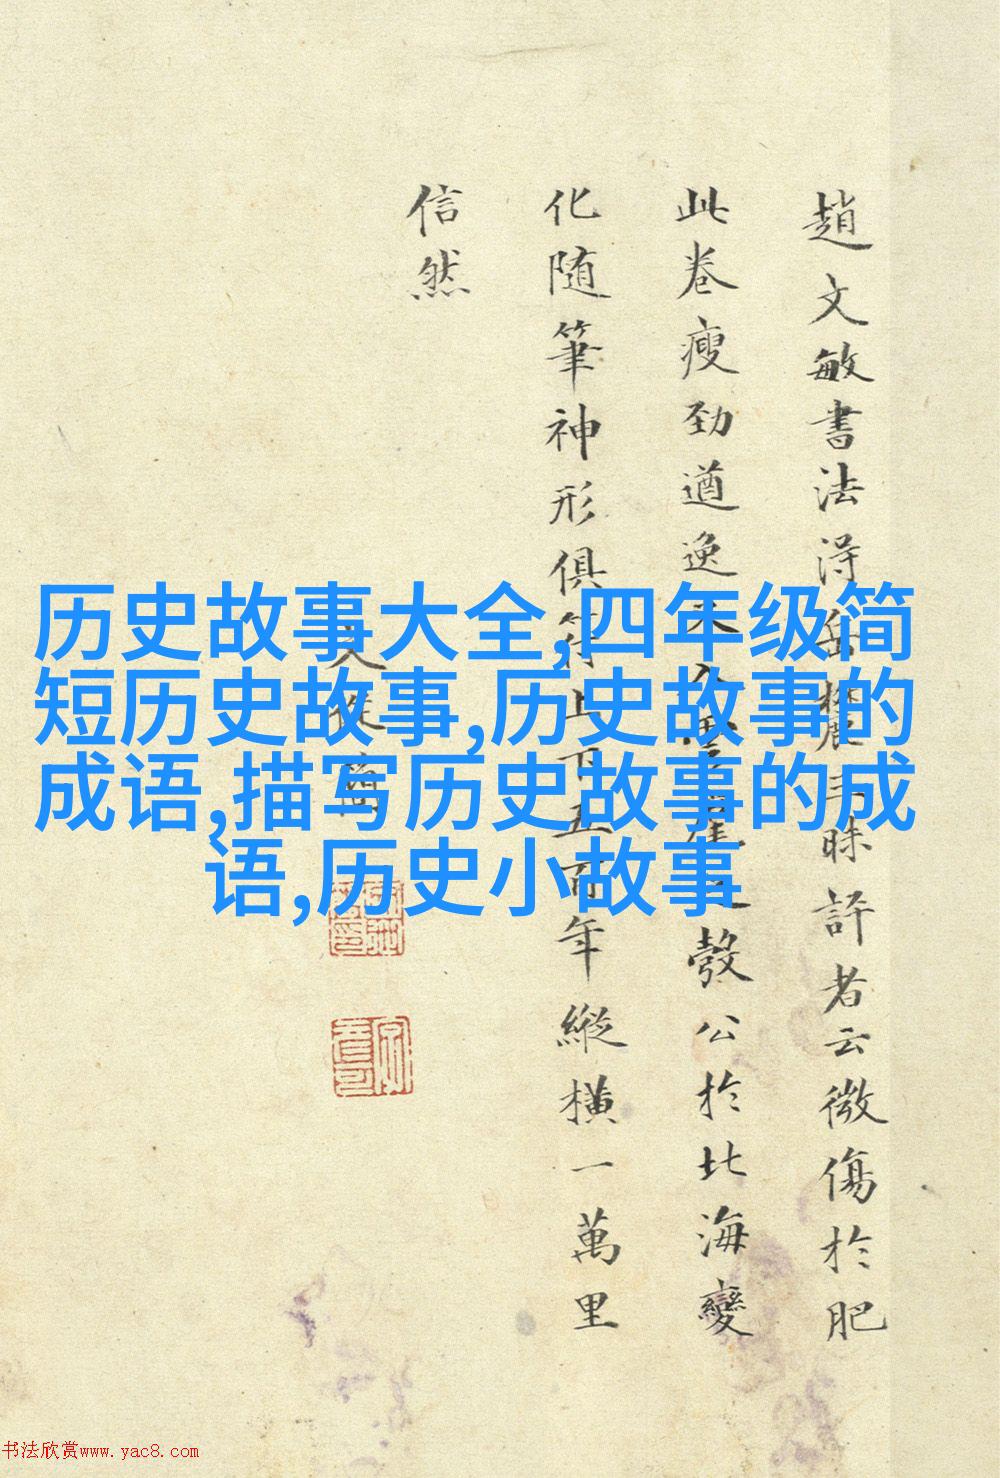 趙文敏書法淂岳麓三昧評者云微傷於肥
此卷瘦勁遒逸天入
發公於北海變
化随筆神形俱符上下五百年縱橫一萬里
信然
历史故事大全,四年级简
短历史故事,历史故事的
成语,描写历史故事的成
语,历史小故事
书法欣赏www.yac8.com